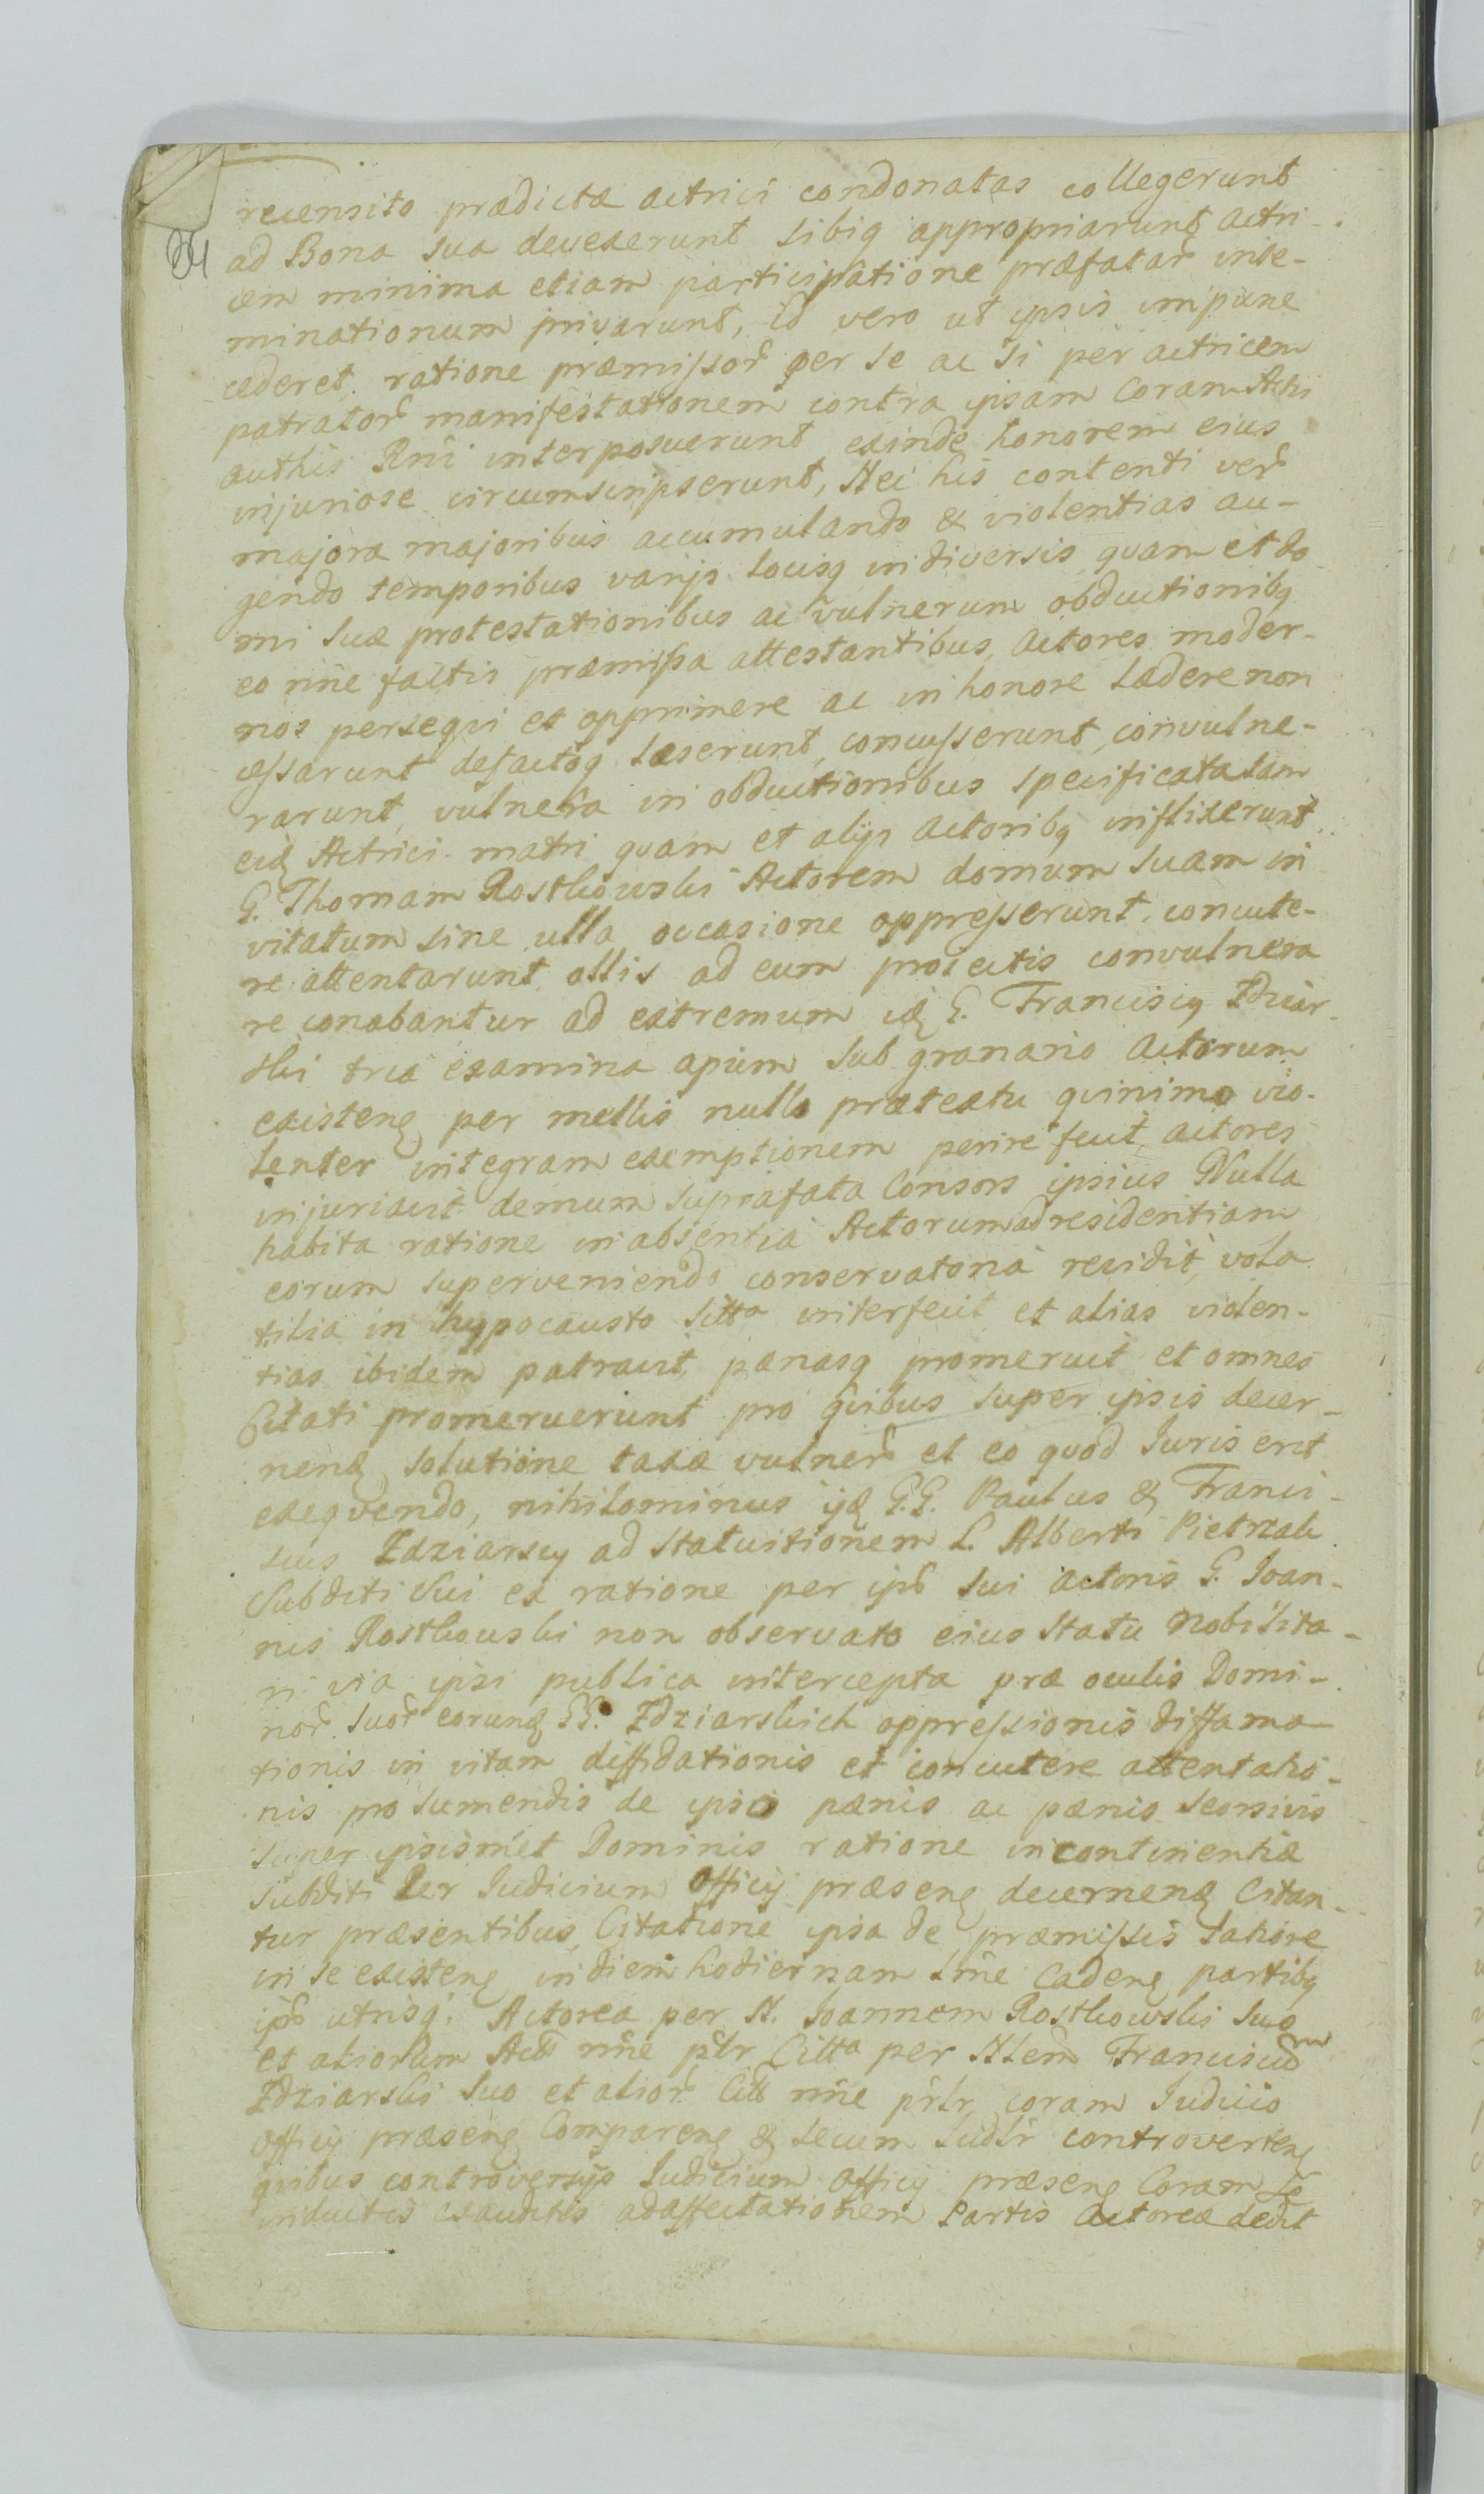 recensito prædictæ actrici condonatas collegerunt
ad Bona sua devexerunt sibiq appropriarunt actri-
cem minima etiam participatione præfatar inse-
minationum privarunt, id vero ut ipsis impune
cederet ratione præmissor per se ac si per actricem
patrator manifestationem contra ipsam Coram Actis
authis Rni interposuerunt exinde honorem eius
injuriose circumscripserunt, Nec his contenti ver
majora majoribus accumulando & violentias au-
gendo temporibus varijs locisq in diversis quam et do
mi suæ protestationibus ac vulnerum obductionibq
eo nne factis præmissa attestantibus, Actores moder-
nos persequi et opprimere ac in honore lædere non
cessarunt defactoq læserunt, concusserunt, convulne-
rarunt, vulnera in obductionibus specificata tam
eid Actrici matri quam et alijs Actoribq inflixerunt
G. Thomam Rostkowski Actorem domum suam in
vitatum sine ulla occasione oppresserunt, concute-
re attentarunt, ollis ad eum projectis convulnera
re conabantur ad extremum id G. Franciscq Zdziar-
ski tria examina apium sub granario Actorum
existen per mellis nullo prætextu quinimo vio-
lenter integram exemptionem perire fecit, actores
injuriavit demum suprafata Consors ipsius Nulla
habita ratione in absentia Actorum ad residentiam
eorum superveniendo conservatoria recidit, vola
tilia in hypocausto Citta interfecit et alias violen-
tias ibidem patravit, pænasq promeruit et omnes
Citati promeruerunt pro quibus super ipsis decer-
nend solutione taxæ vulner et eo quod Juris erit
exequendo, nihilominus ijd G.G. Paulus & Franci-
scus Zdziarscy ad statuitionem L. Alberti Pietrzak
Subditi Sui ex ratione per ips sui Actoris G. Joan-
nis Rostkowski non observato eius statu Nobilita-
ri via ipsi publica intercepta præ oculis Domi-
nor suor eorund GG. Zdziarskich oppressionis diffama-
tionis in vitam diffidationis et concutere attentatio-
nis pro sumendis de ipso pænis ac pænis seorsivis
super ipsismet Dominis ratione incontinentiæ
subditi Per Judicium Officij præsen decernend Citan-
tur præsentibus, Citatione ipsa de præmissis latiore
in se existen in diem hodiernam lme Caden partibq
ips utrisq. Actorea per N. Joannem Rostkowski suo
et aliorum Act nne plr Citta per Nlem Franciscum
Zdziarski suo et alior Citt nne prlr coram Judicio
Officij præsen Comparen & secum Judlr controverten
quibus controversijs Judicium Officij præsen Coram se
inductis exauditis ad affectationem Partis Actoreæ dedit